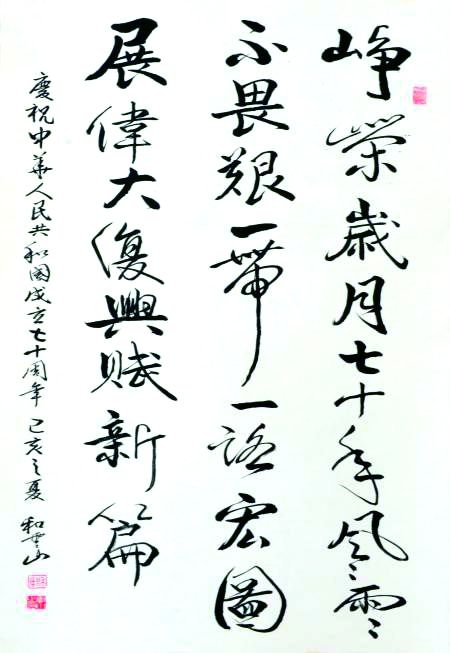 崢嶸歲月七十年风々雨々
不畏艱一帶一路宏圖
展偉大復興賦新篇
慶祝中華人民共和國成立七十周年 己亥之夏 和山